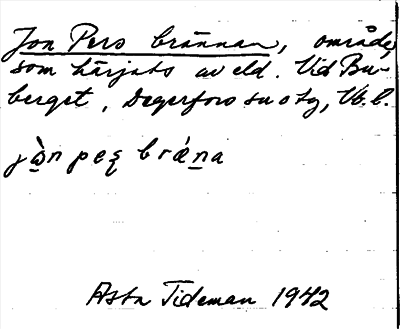 Jon Pers brännan, område,
som härjats av eld. Vid Bu-
berget, Degerfors sn o tg, Vb. l.
Asta Tideman 1942